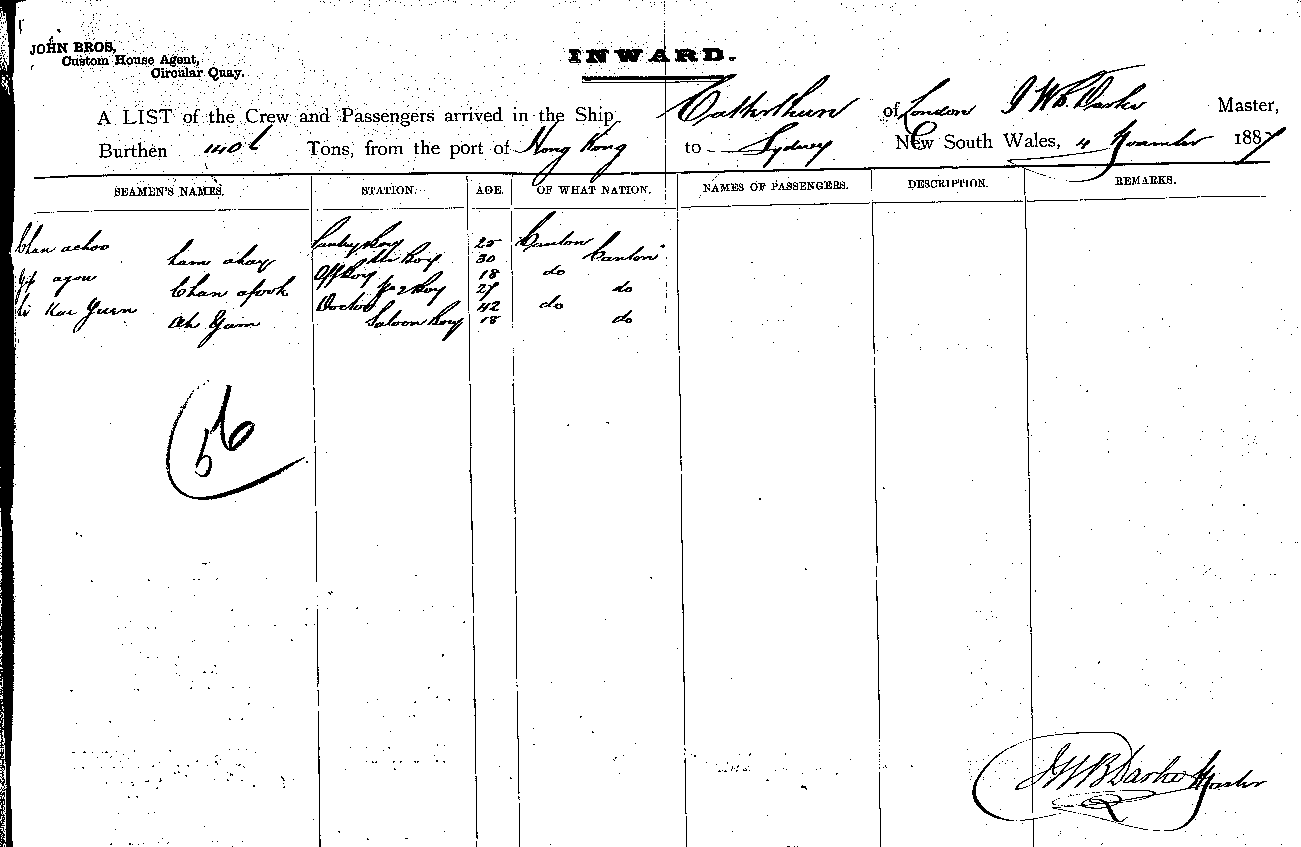 JOHN BROS,
Custom House Agent,
Circular Quay.
INWARD.
A LIST of the Crew and Passengers arrived in the Ship Catterthun of London J W B Darke Master,
Burthen 1406 Tons, from the port of Hong Kong to Sydney New South Wales, 4 November 1887
SEAMEN'S NAMES. STATION. AGE. OF WHAT NATION. NAMES OF PASSENGERS. DESCRIPTION. REMARKS.
Chan achoo Pantry Boy 25 Canton
Lam ahay Boy 30 Canton
Yip agou Off Boy 18 do
Chan afook No 2 Boy 27 do
Li Kai Yuen Doctor 42 do
Ah Yam Saloon Boy 18 do
56
JWB Darke Master